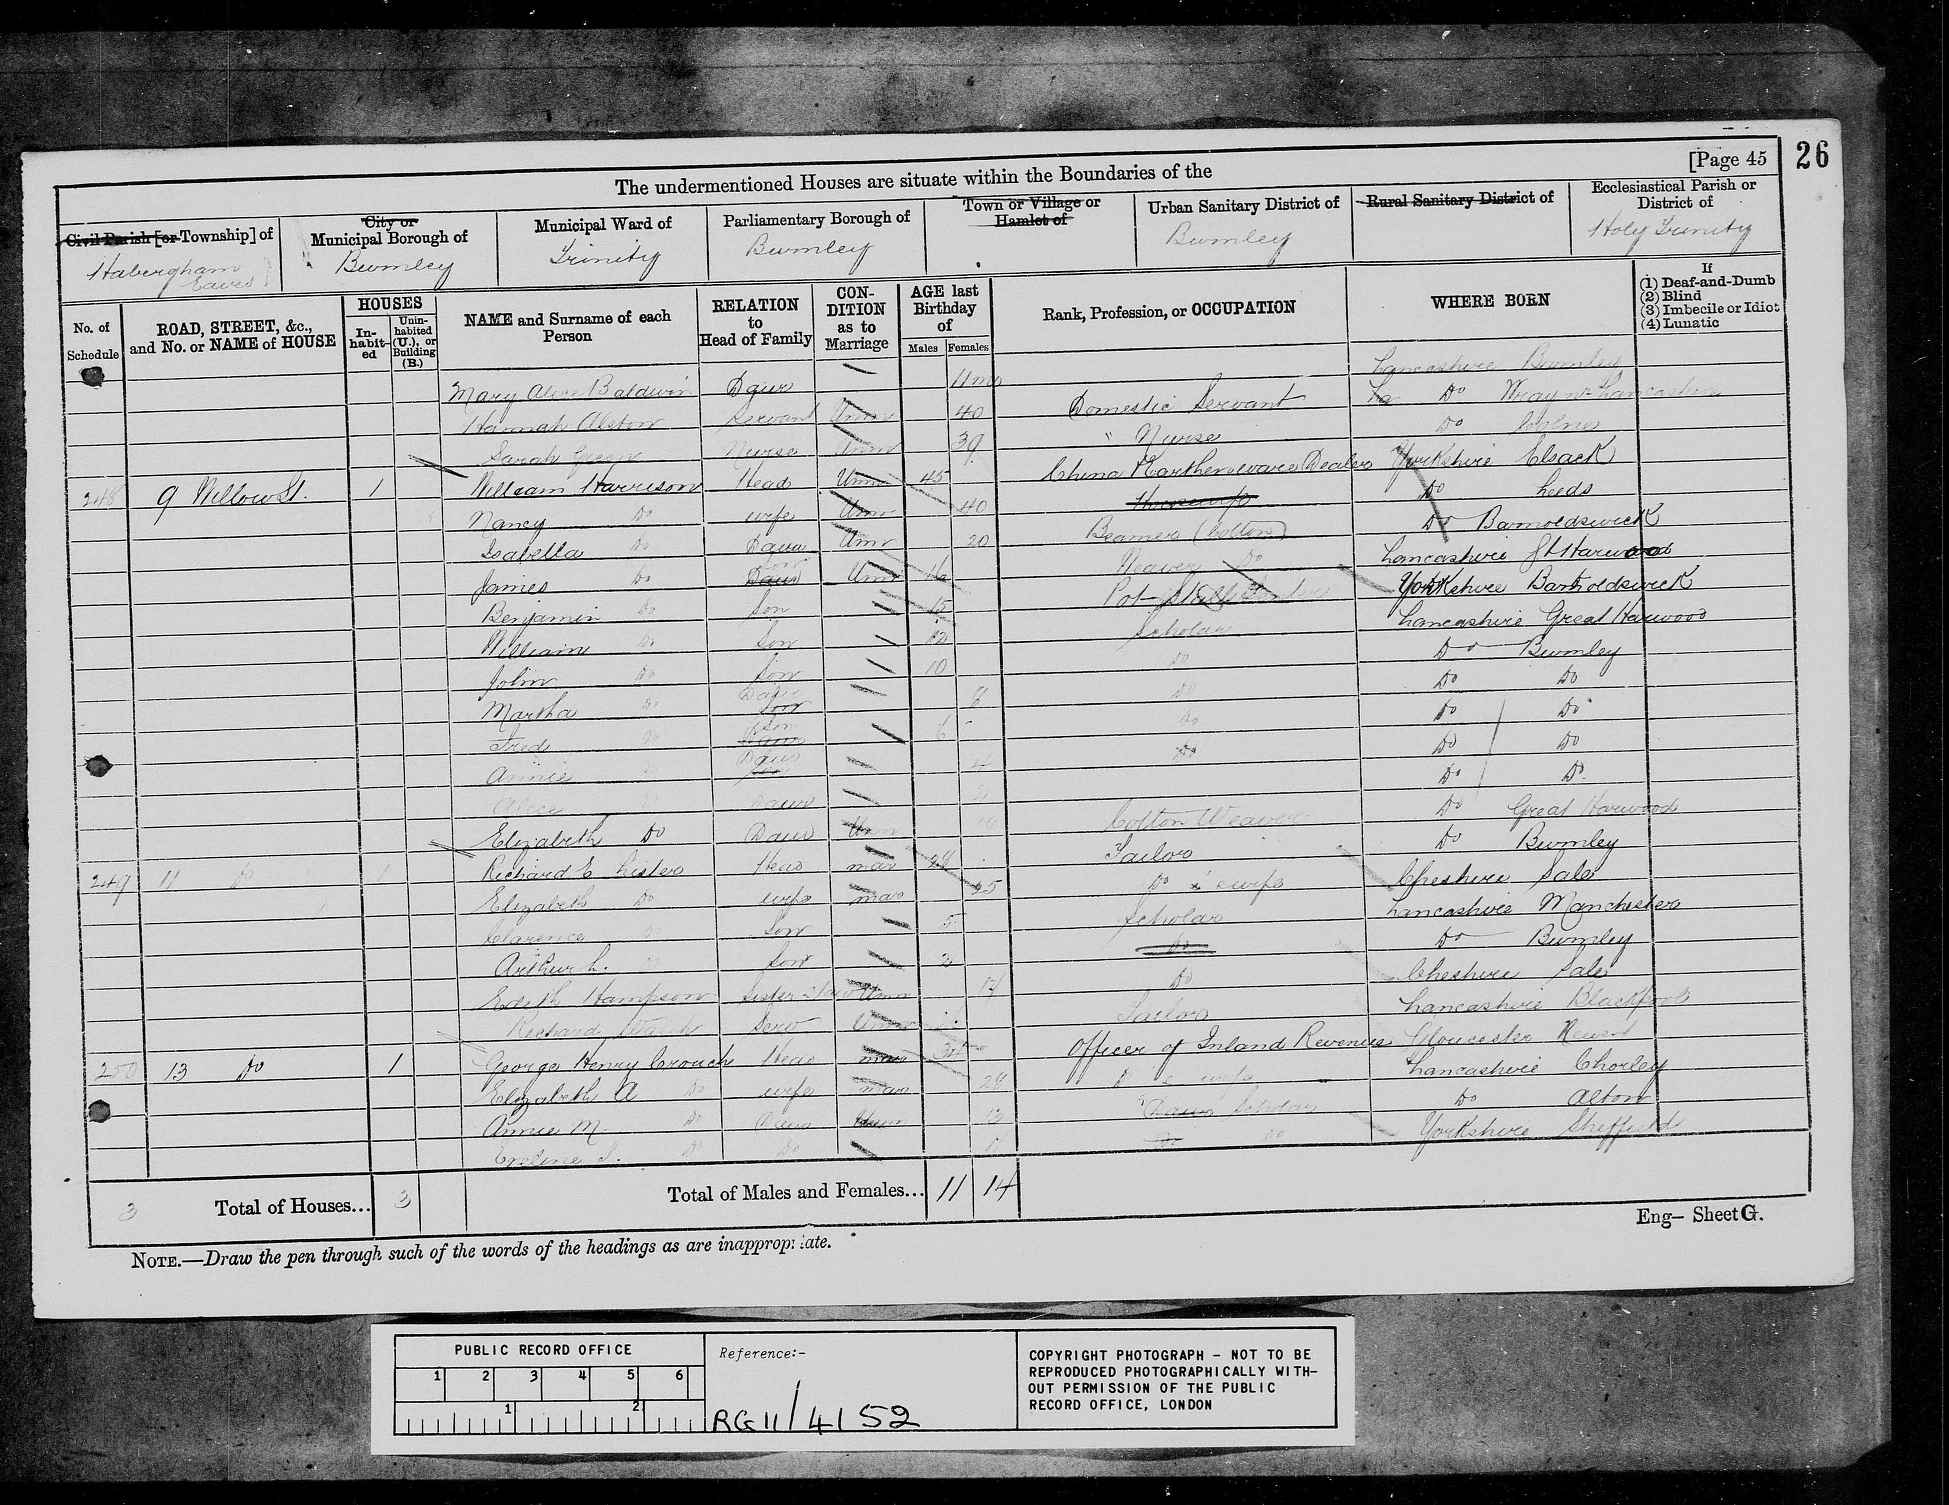 The undermentioned Houses are situate within the Boundaries of the
[Page 45
26
Civil Parish [or Township] of
Habergham Eaves
City or Municipal Borough of
Burnley
Municipal Ward of
Trinity
Parliamentary Borough of
Burnley
Town or Village or Hamlet of
Urban Sanitary District of
Burnley
Rural Sanitary District of
Ecclesiastical Parish or District of
Holy Trinity
No. of Schedule
ROAD, STREET, &c., and No. or NAME of HOUSE
HOUSES
In-habit-ed
Unin-habited (U.), or Building (B.)
NAME and Surname of each Person
RELATION to Head of Family
CON-DITION as to Marriage
AGE last Birthday of
Males Females
Rank, Profession, or OCCUPATION
WHERE BORN
If
(1) Deaf-and-Dumb
(2) Blind
(3) Imbecile or Idiot
(4) Lunatic
Mary Alice Baldwin Daur 11mo Lancashire Burnley
Hannah Alston Servant Unm 40 Domestic Servant La Do Wray nr Lancaster
Sarah Green Nurse Unm 39 " Nurse Do Colne
248 9 Willow St. 1 William Harrison Head Unm 45 China & Earthenware Dealer Yorkshire Elsack
Nancy Do wife Unm 40 Housewife Do Leeds
Isabella Do Daur Unm 20 Beamer (Cotton) Do Barnoldswick
James Do Son Daur Unm Weaver Do Lancashire Gt Harwood
Benjamin Do Son 15 Pot Stall Yorkshire Barnoldswick
William Do Son 12 Scholar Lancashire Great Harwood
John Do Son 10 Do Do Burnley
Martha Do Daur Son 8 Do Do Do
Fred Do Son Daur 6 Do Do Do
Annie Daur 4 Do Do Do
Alice Daur Do Do
Elizabeth Do Daur Unm Cotton Weaver Do Great Harwood
249 11 Do 1 Richard E Lister Head mar 28 Tailor Do Burnley
Elizabeth Do wife mar 25 Do s wife Cheshire Sale
Clarence Do Son 5 Scholar Lancashire Manchester
Arthur L. Do Son 2 Do Do Burnley
Edith Hampson Sister in law Unm 17 Do Cheshire Sale
Richard Serv Unm Tailor Lancashire Blackpool
250 13 Do 1 George Henry Crouch Head mar 34 Officer of Inland Revenue Gloucester Newent
Elizabeth A Do wife mar 28 Do s wife Lancashire Chorley
Annie M. Do Daur Unm Scholar Do Alton
Do Do Do Yorkshire Sheffield
3 Total of Houses... 3
Total of Males and Females... 11 14
Eng— Sheet G.
NOTE.—Draw the pen through such of the words of the headings as are inappropriate.
PUBLIC RECORD OFFICE
1 2 3 4 5 6
1 2
Reference:-
RG11/4152
COPYRIGHT PHOTOGRAPH - NOT TO BE
REPRODUCED PHOTOGRAPHICALLY WITH-
OUT PERMISSION OF THE PUBLIC
RECORD OFFICE, LONDON